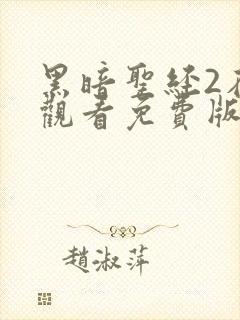 黑暗聖經2
觀看免費版
趙淑萍